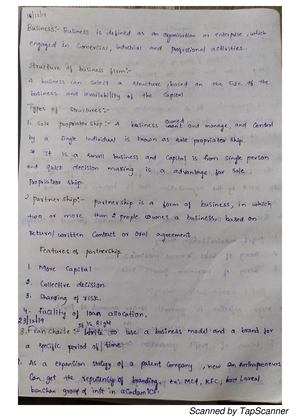 Business:- Business is defined as an organisation or enterprise, which
engaged in Comercial, industrial and professional activities.
Structure of business firm:-
A business can select a structure, based on the size of the
business and availability of the Capital
Types of Structures:-
1. Sole propriator ship:- A business owned and manage, and Control
by a single individual is known as sole propriator ship
* It is a small business and Capital is from single person
and quick decision making is a advantage for sole
Propriator ship
2) partner ship:- partnership is a form of business, in which
two or more than 2 people owners a business based on
Return/written Contact or Oral agreement
Features of partnership
1. More Capital
2. Collective decision
3. Sharing of risk.
4. facility of loan allocation.
3. Franchaise:- It is Right to use a business model and a brand for
a specific period of time
2. As a expansion stategy of a parent Company, new an Entrapreneurs
Can get the of branding. ex: KFC,
group of inst in
Scanned by TapScanner